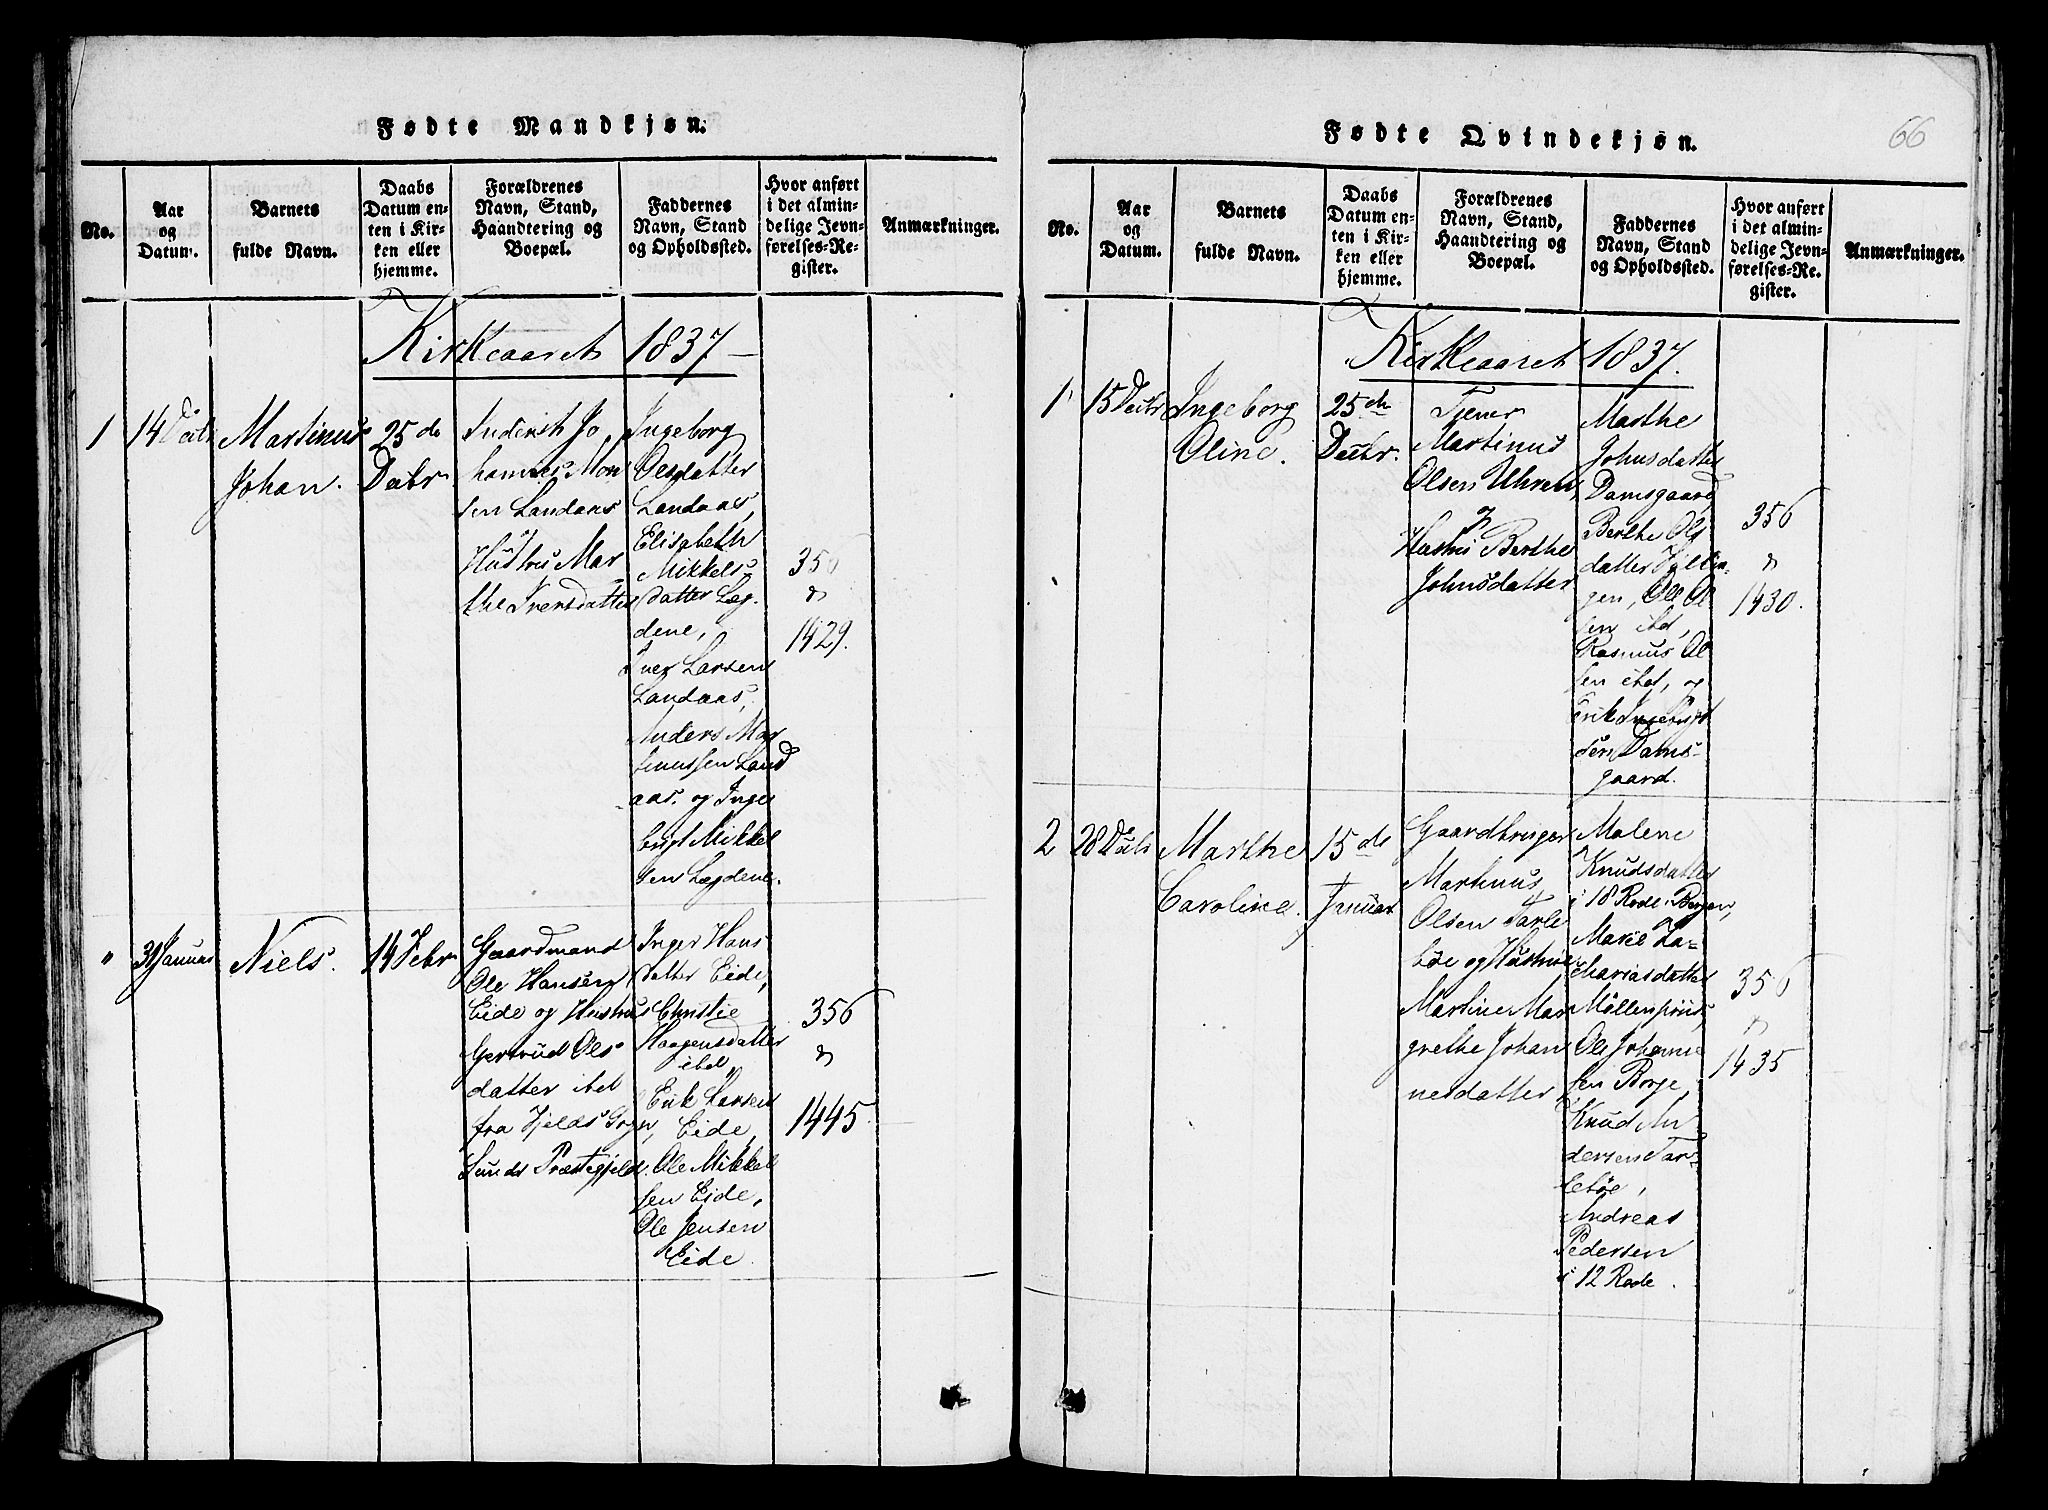 Fødte Mandkjøn.
No.
Aar
og
Datum.
Barnets
fulde Navn.
Daabs
Datum en-
ten i Kir-
ken eller
hjemme.
Forældrenes
Navn, Stand,
Haandtering og
Boepæl.
Faddernes
Navn, Stand
og Opholdssted.
Hvor anført
i det almin-
delige Jevn-
førelses-Re-
gister.
Anmærkninger.
Kirkeaaret 1837
1
14 Decbr
Martinus
Johan.
25 de
Decbr
Inderst Jo
hannes Mon
sen Landaas
Hustru Mar
the Iversdatter
Ingeborg
Olesdatter
Landaas,
Elisabeth
Mikkels-
datter Læg-
dene,
Iver Larsen
Landaas,
Anders Mag
nussen Land
aas. og Inge
brigt Mikkel
sen Lægdene.
356
&
1429.
"
31 Januar
Niels.
14 Febr
Gaardmand
Ole Hansen
Eide og Hustru
Gertrud Ols
datter ibd
fra Hjelds Sogn,
Sunds Præstegjeld.
Inger Hans
datter Eide,
Christie
Haagensdatter
ibd,
Erik Larsen
Eide,
Ole Mikkel
sen Eide,
Ole Jensen
Eide.
356
&
1445
Fødte Qvindekjøn.
66
No.
Aar
og
Datum.
Barnets
fulde Navn.
Daabs
Datum en-
ten i Kir-
ken eller
hjemme.
Forældrenes
Navn, Stand,
Haandtering og
Boepæl.
Faddernes
Navn, Stand
og Opholdssted.
Hvor anført
i det almin-
delige Jevn-
førelses-Re-
gister.
Anmærkninger.
Kirkeaaret 1837.
1
15 Decbr
Ingeborg
Oline.
25 de
Decbr.
Tjener
Martinus
Olsen Uhren
&
Hustru Berthe
Johnsdatter
Marthe
Johnsdatter
Damsgaard
Berthe Ols
datter Hyllin-
gen, Ole Ol
sen ibd,
Rasmus Ol
sen ibd, og
Erik Ingebrigt
sen Dams-
gaard.
356
&
1430.
2
28 Decbr
Marthe
Caroline.
15 de
Januar
Gaardbruger
Martinus
Olsen Tarle
bøe og Hustrue
Martine Mar
grethe Johan
nesdatter
Malene
Knudsdatter
i 18 Rode i Bergen,
Marie Za-
chariasdatter
Møllenpriis,
Ole Johanne
sen Borge,
Knud An
dersen Tar-
lebøe,
Andreas
Pedersen
i 12 Rode.
356
&
1435